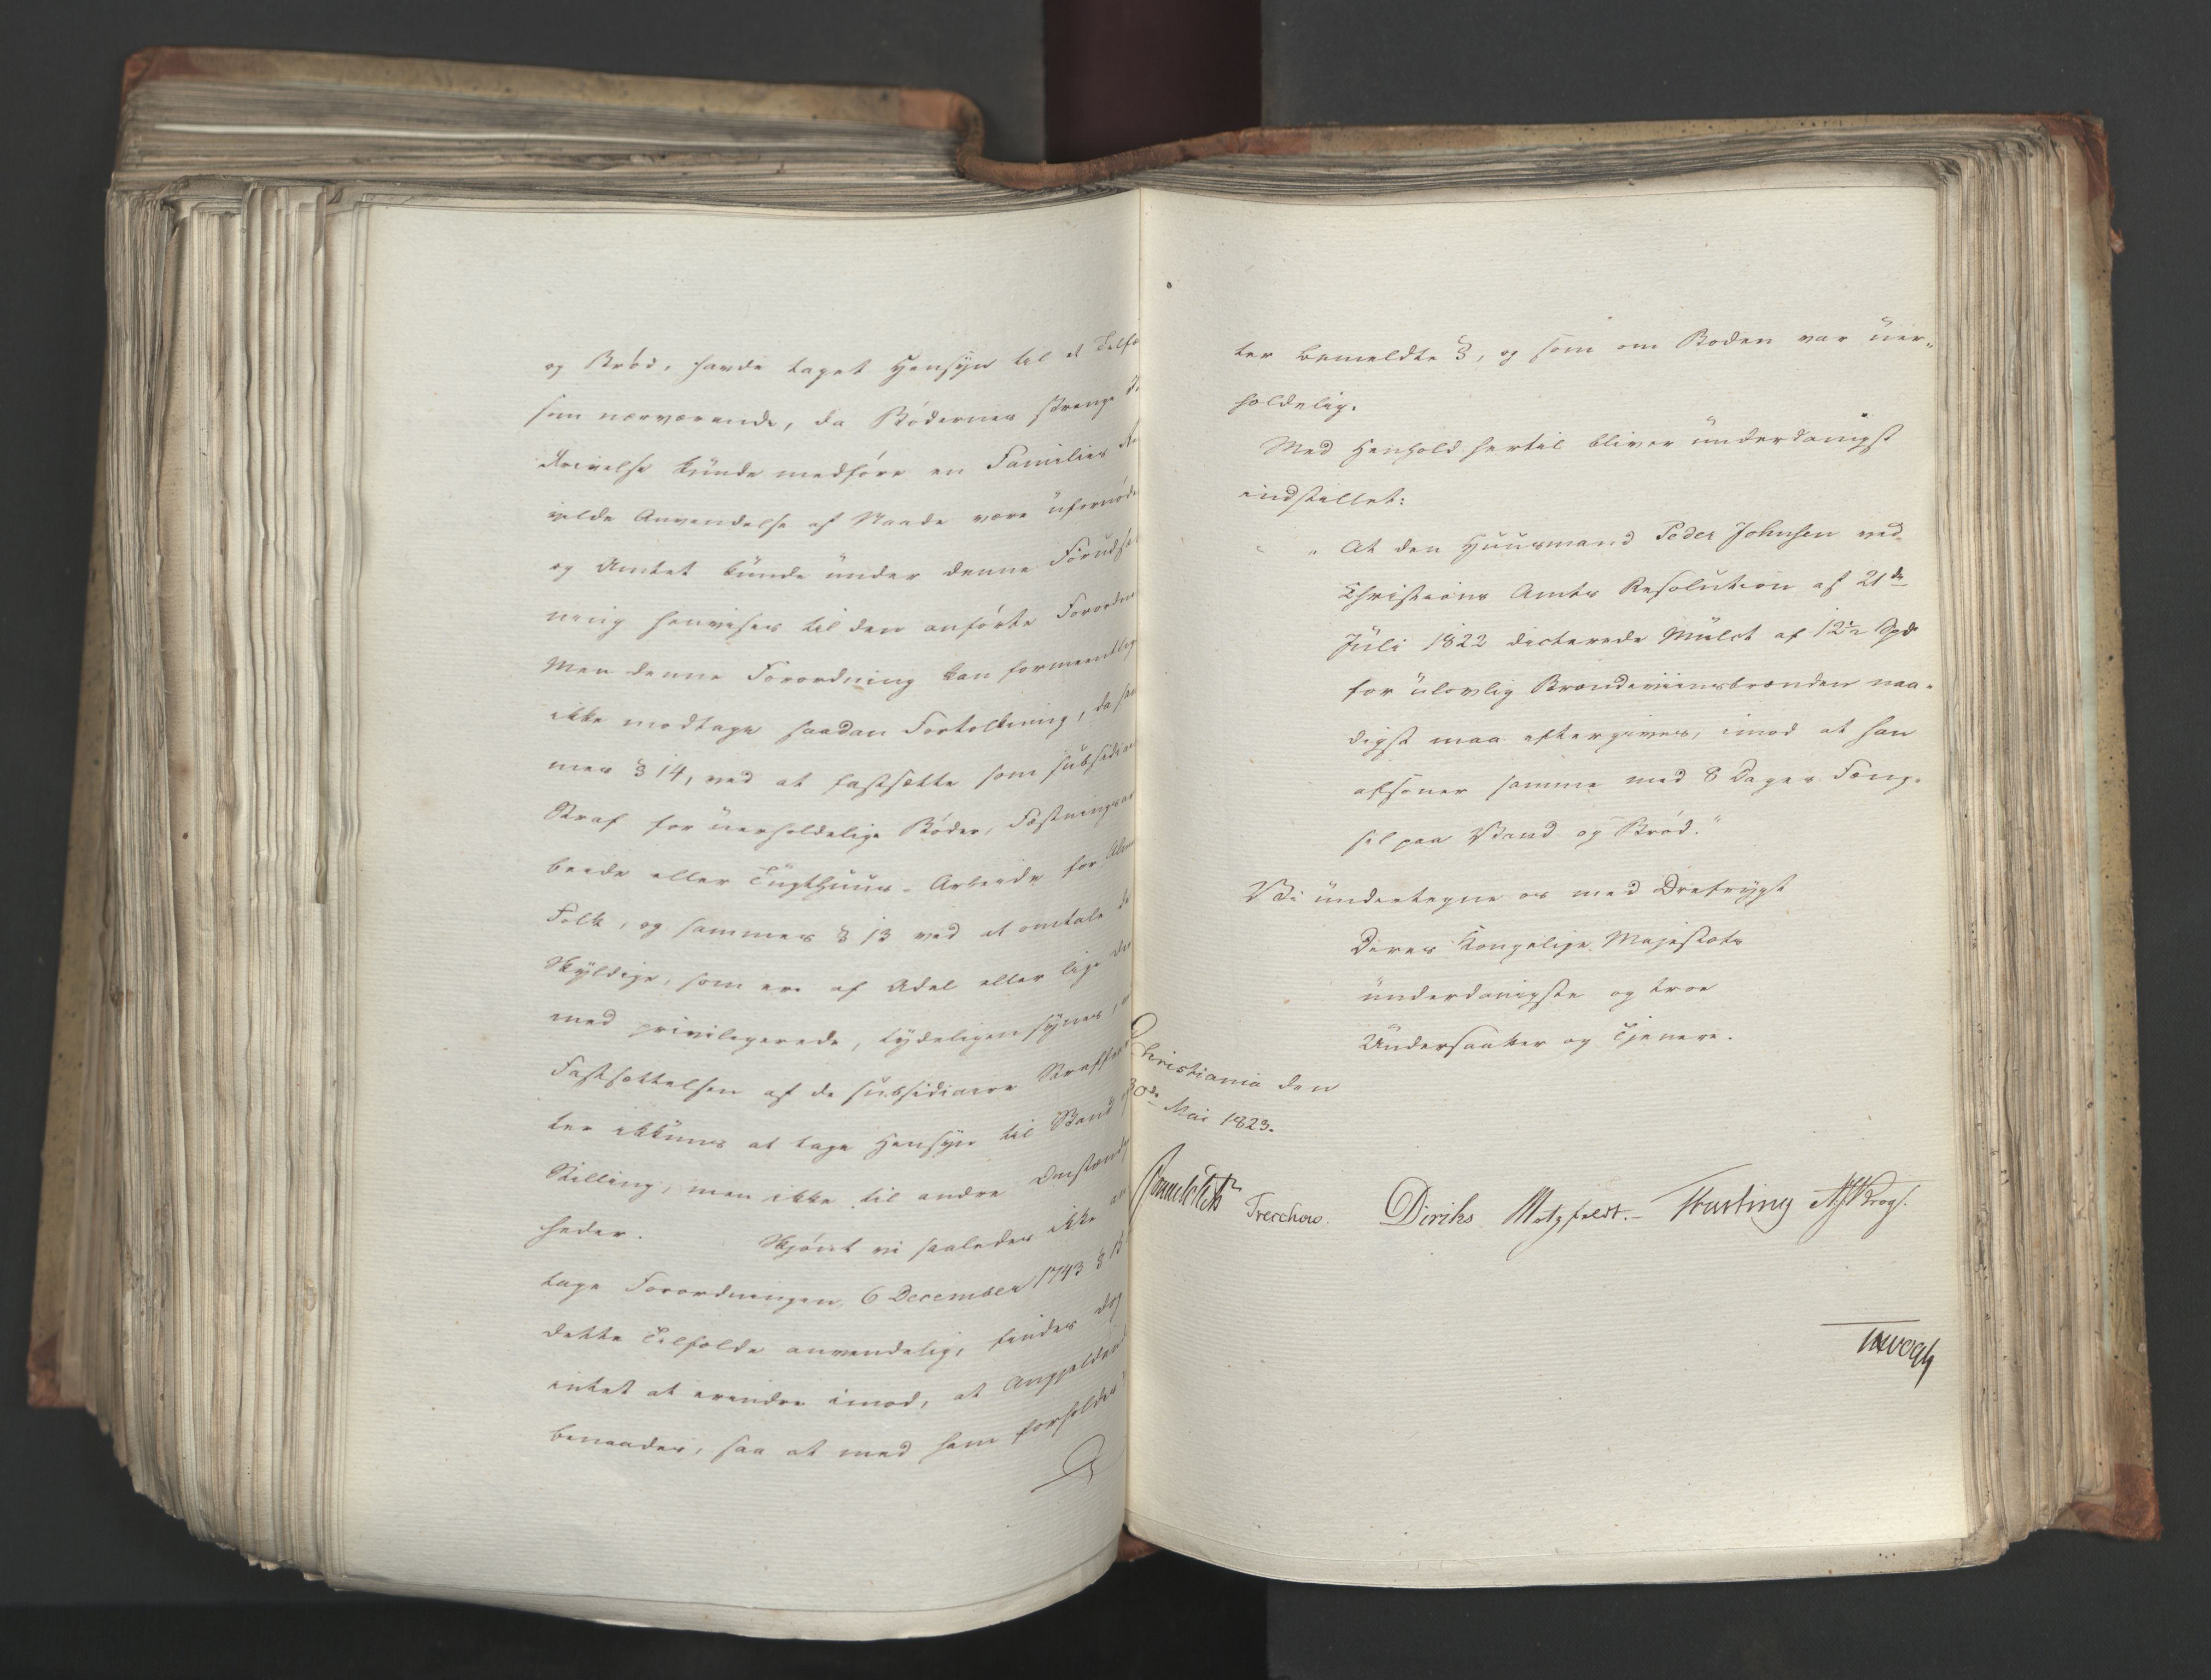 og Brød, havde taget Hensyn til et Tilfæ
som nærværende, da Bødernes strenge
drivelse kunde medføre en Families
vilde Anvendelse af Naade være ufornød
og Amtet kunde under denne Forudsæt
ning henvises til den anførte Forordn
Men denne Forordning kan formeentlig
ikke modtage saadan Fortolkning, da sam
mes § 14, ved at fastsætte som subsidiair
Straf for uerholdelige Bøder, Fæstningsar
beide eller Tugthuus-Arbeide for Alm
Folk, og sammes § 13 ved at omtale de
Skyldige, som ere af Adel eller lige der
med privilegerede, tydeligen synes,
Fastsættelsen af de subsidiaire Straffe
ter ikkuns at tage Hensyn til Stand
Stilling, men ikke til andre Omstændig
heder. Skjønt vi saaledes ikke an
tage Forordningen 6 December 1743 § 13
dette Tilfælde anvendelig, findes dog
intet at erindre imod, at Angjældend
benaades, saa at med ham forholdes
ter bemeldte §, og som om Boden var uer„
holdelig.
Med Henhold hertil bliver underdanigst
indstillet:
„At den Huusmand Peder Johnsen ved
Christians Amts Resolution af 21de
Juli 1822 dicterede Mulct af 12½ Spd
for ulovlig Brændeviinsbrænden naa-
digst maa eftergives, imod at han
afsoner samme med 8 Dages Fæng-
sel paa Vand og Brød."
Vi undertegne os med Dybfrygt
Deres Kongelige Majestæts
underdanigste og troe
Undersaatter og Tjenere.
Christiania den
30de Mai 1823.
Treschow. Diriks Motzfeldt. Fasting